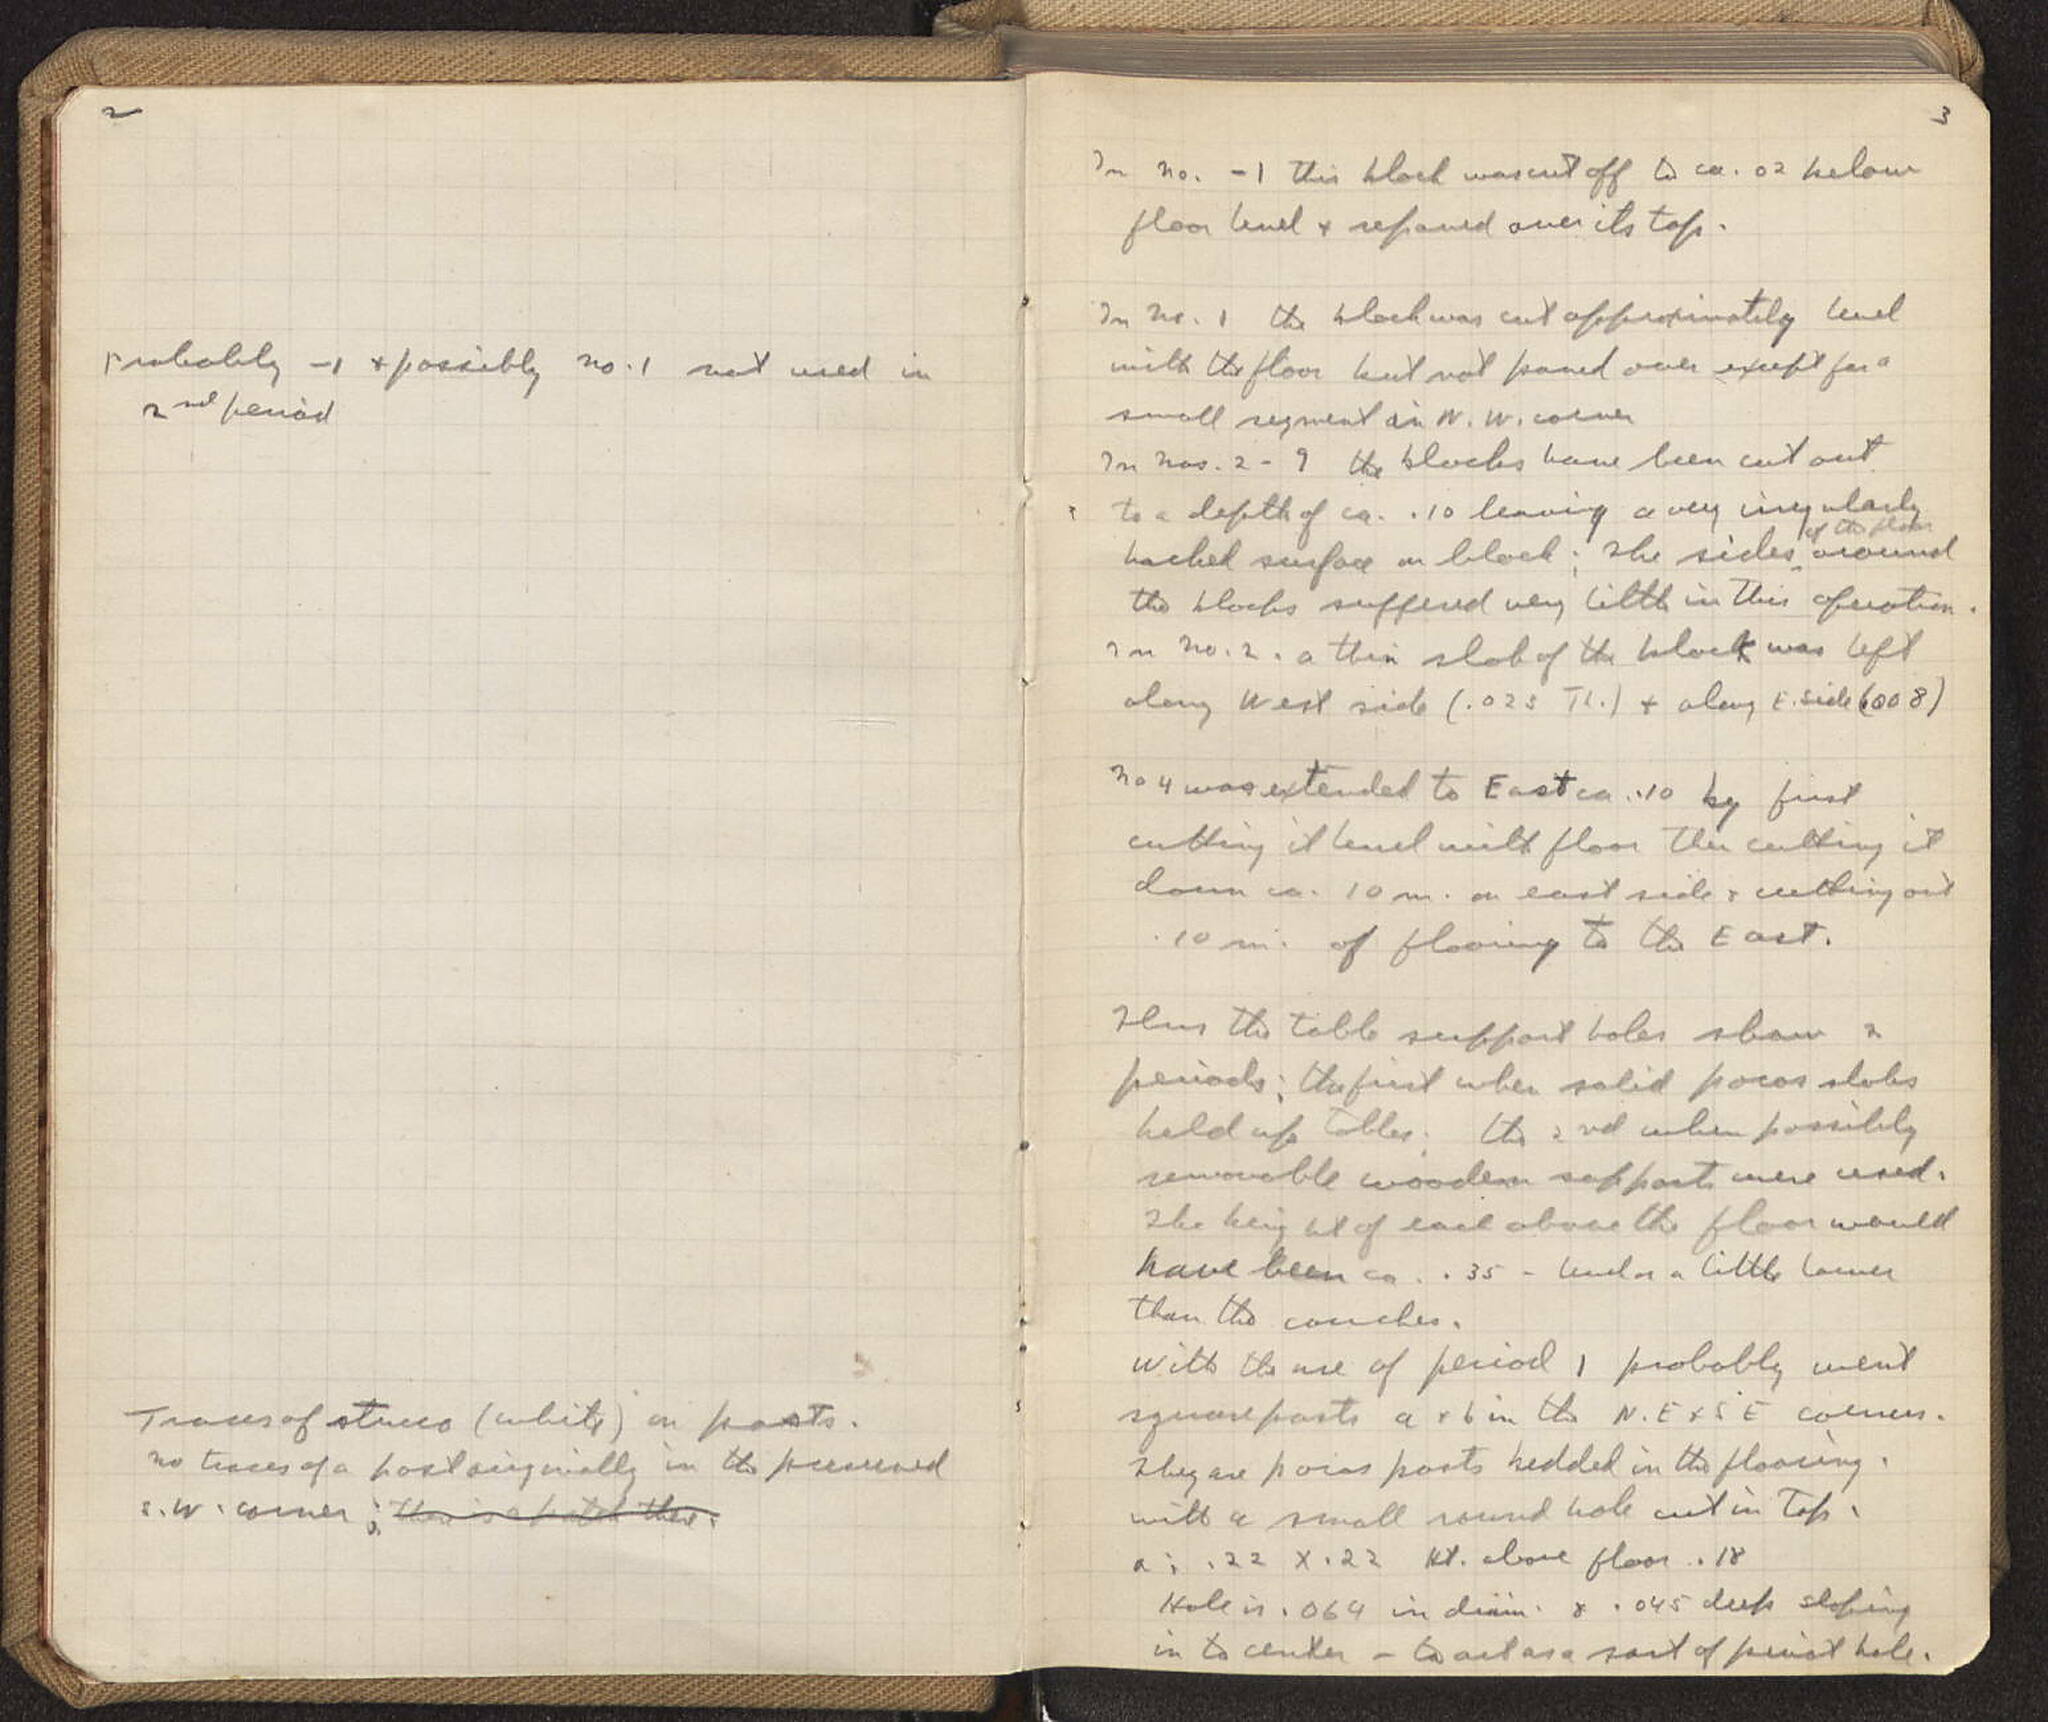 2
Probably -1 + possibly no. 1 not used in
2nd period
Traces of stucco (white) on posts.
no traces of a post originally in the preserved
S.W. corner; there is a patch there.
3
In no. -1 this block was cut off to ca. 02 below
floor level + repaved over its top.
In no. 1 the block was cut approximately level
with the floor but not paved over except for a
small segment in N.W. corner
In nos. 2 - 9 the blocks have been cut out
to a depth of ca. .10 leaving a very irregularly
hacked surface on block; The sides of the floor around
the blocks suffered very little in this operation.
In no. 2. a thin slab of the block was left
along West side (.023 Th.) + along E. side (.008)
no 4 was extended to East ca. .10 by first
cutting it level with floor then cutting it
down ca. 10 m. on east side + cutting out
.10 m. of flooring to the East.
Thus the table support holes show 2
periods; the first when solid poros slabs
held up tables; the 2nd when possibly
removable wooden supports were used.
The height of each above the floor would
have been ca. .35 - level or a little lower
than the couches.
With the use of period 1 probably went
square posts a + b in the N.E + S E corners.
They are poros posts bedded in the flooring.
with a small round hole cut in Top.
a: .22 X .22 Ht. above floor .18
Hole is .064 in diam. & .045 deep sloping
in to center - to act as a sort of pivot hole.